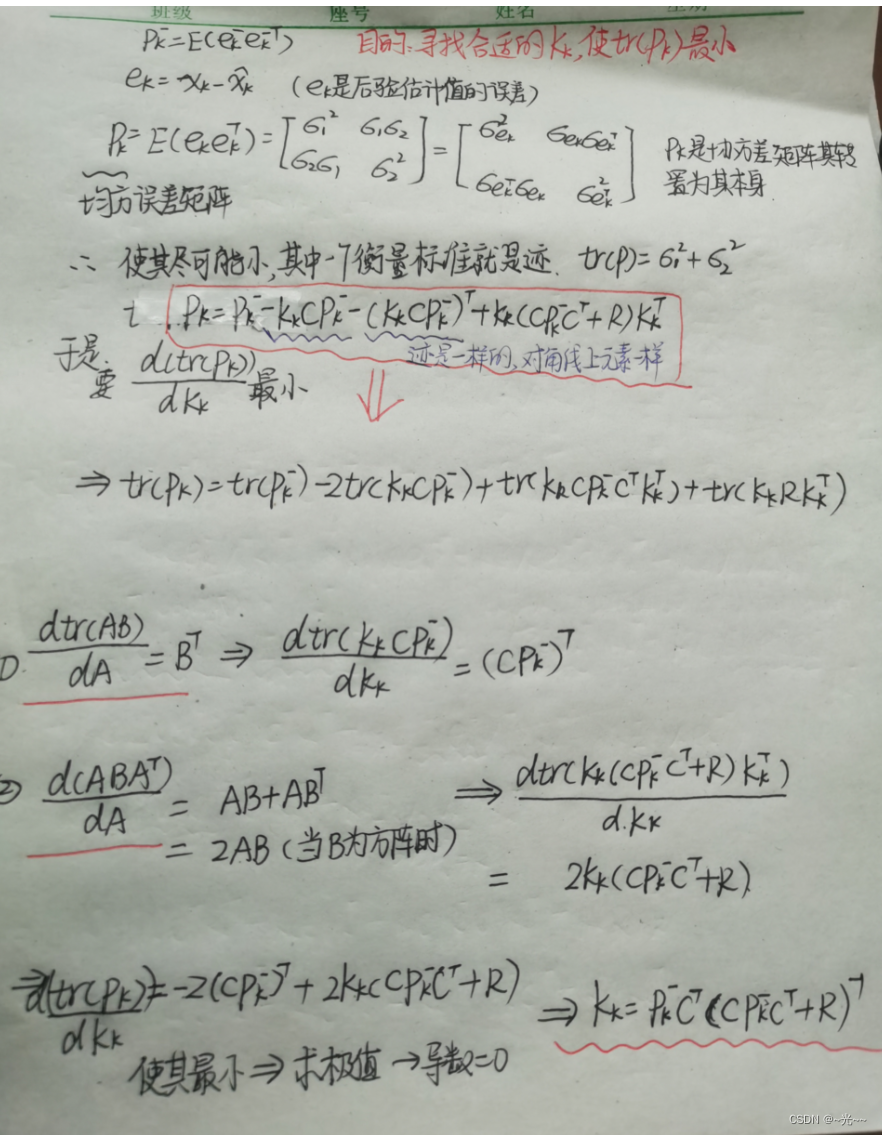 班级 座号 姓名
P_K^- = E(e_K^- e_K^{-T}) 目的:寻找合适的K_K,使tr(P_K)最小
e_K = x_K - x̂_K (e_K是后验估计值的误差)
P_K = E(e_K e_K^T) = [σ_1^2 σ_1σ_2; σ_2σ_1 σ_2^2] = [σ_{e_K}^2 σ_{e_K}σ_{e_K^T}; σ_{e_K^T}σ_{e_K} σ_{e_K^T}^2] P_K是协方差矩阵其转置为其本身
均方误差矩阵
∴ 使其尽可能小,其中一个衡量标准就是迹. tr(P) = σ_1^2 + σ_2^2
P_K = P_K^- - K_K C P_K^- - (K_K C P_K^-)^T + K_K (C P_K^- C^T + R) K_K^T
迹是一样的,对角线上元素一样
于是.要 d(tr(P_K))/dK_K 最小
⇒ tr(P_K) = tr(P_K^-) - 2tr(K_K C P_K^-) + tr(K_K C P_K^- C^T K_K^T) + tr(K_K R K_K^T)
①. dtr(AB)/dA = B^T ⇒ dtr(K_K C P_K^-)/dK_K = (C P_K^-)^T
② d(ABA^T)/dA = AB + AB^T ⇒ dtr(K_K (C P_K^- C^T + R) K_K^T)/d.K_K
= 2AB (当B为方阵时) = 2K_K (C P_K^- C^T + R)
⇒ d(tr(P_K))/dK_K = -2(C P_K^-)^T + 2K_K (C P_K^- C^T + R) ⇒ K_K = P_K^- C^T (C P_K^- C^T + R)^{-1}
使其最小 ⇒ 求极值 → 导数=0
CSDN @~光~~